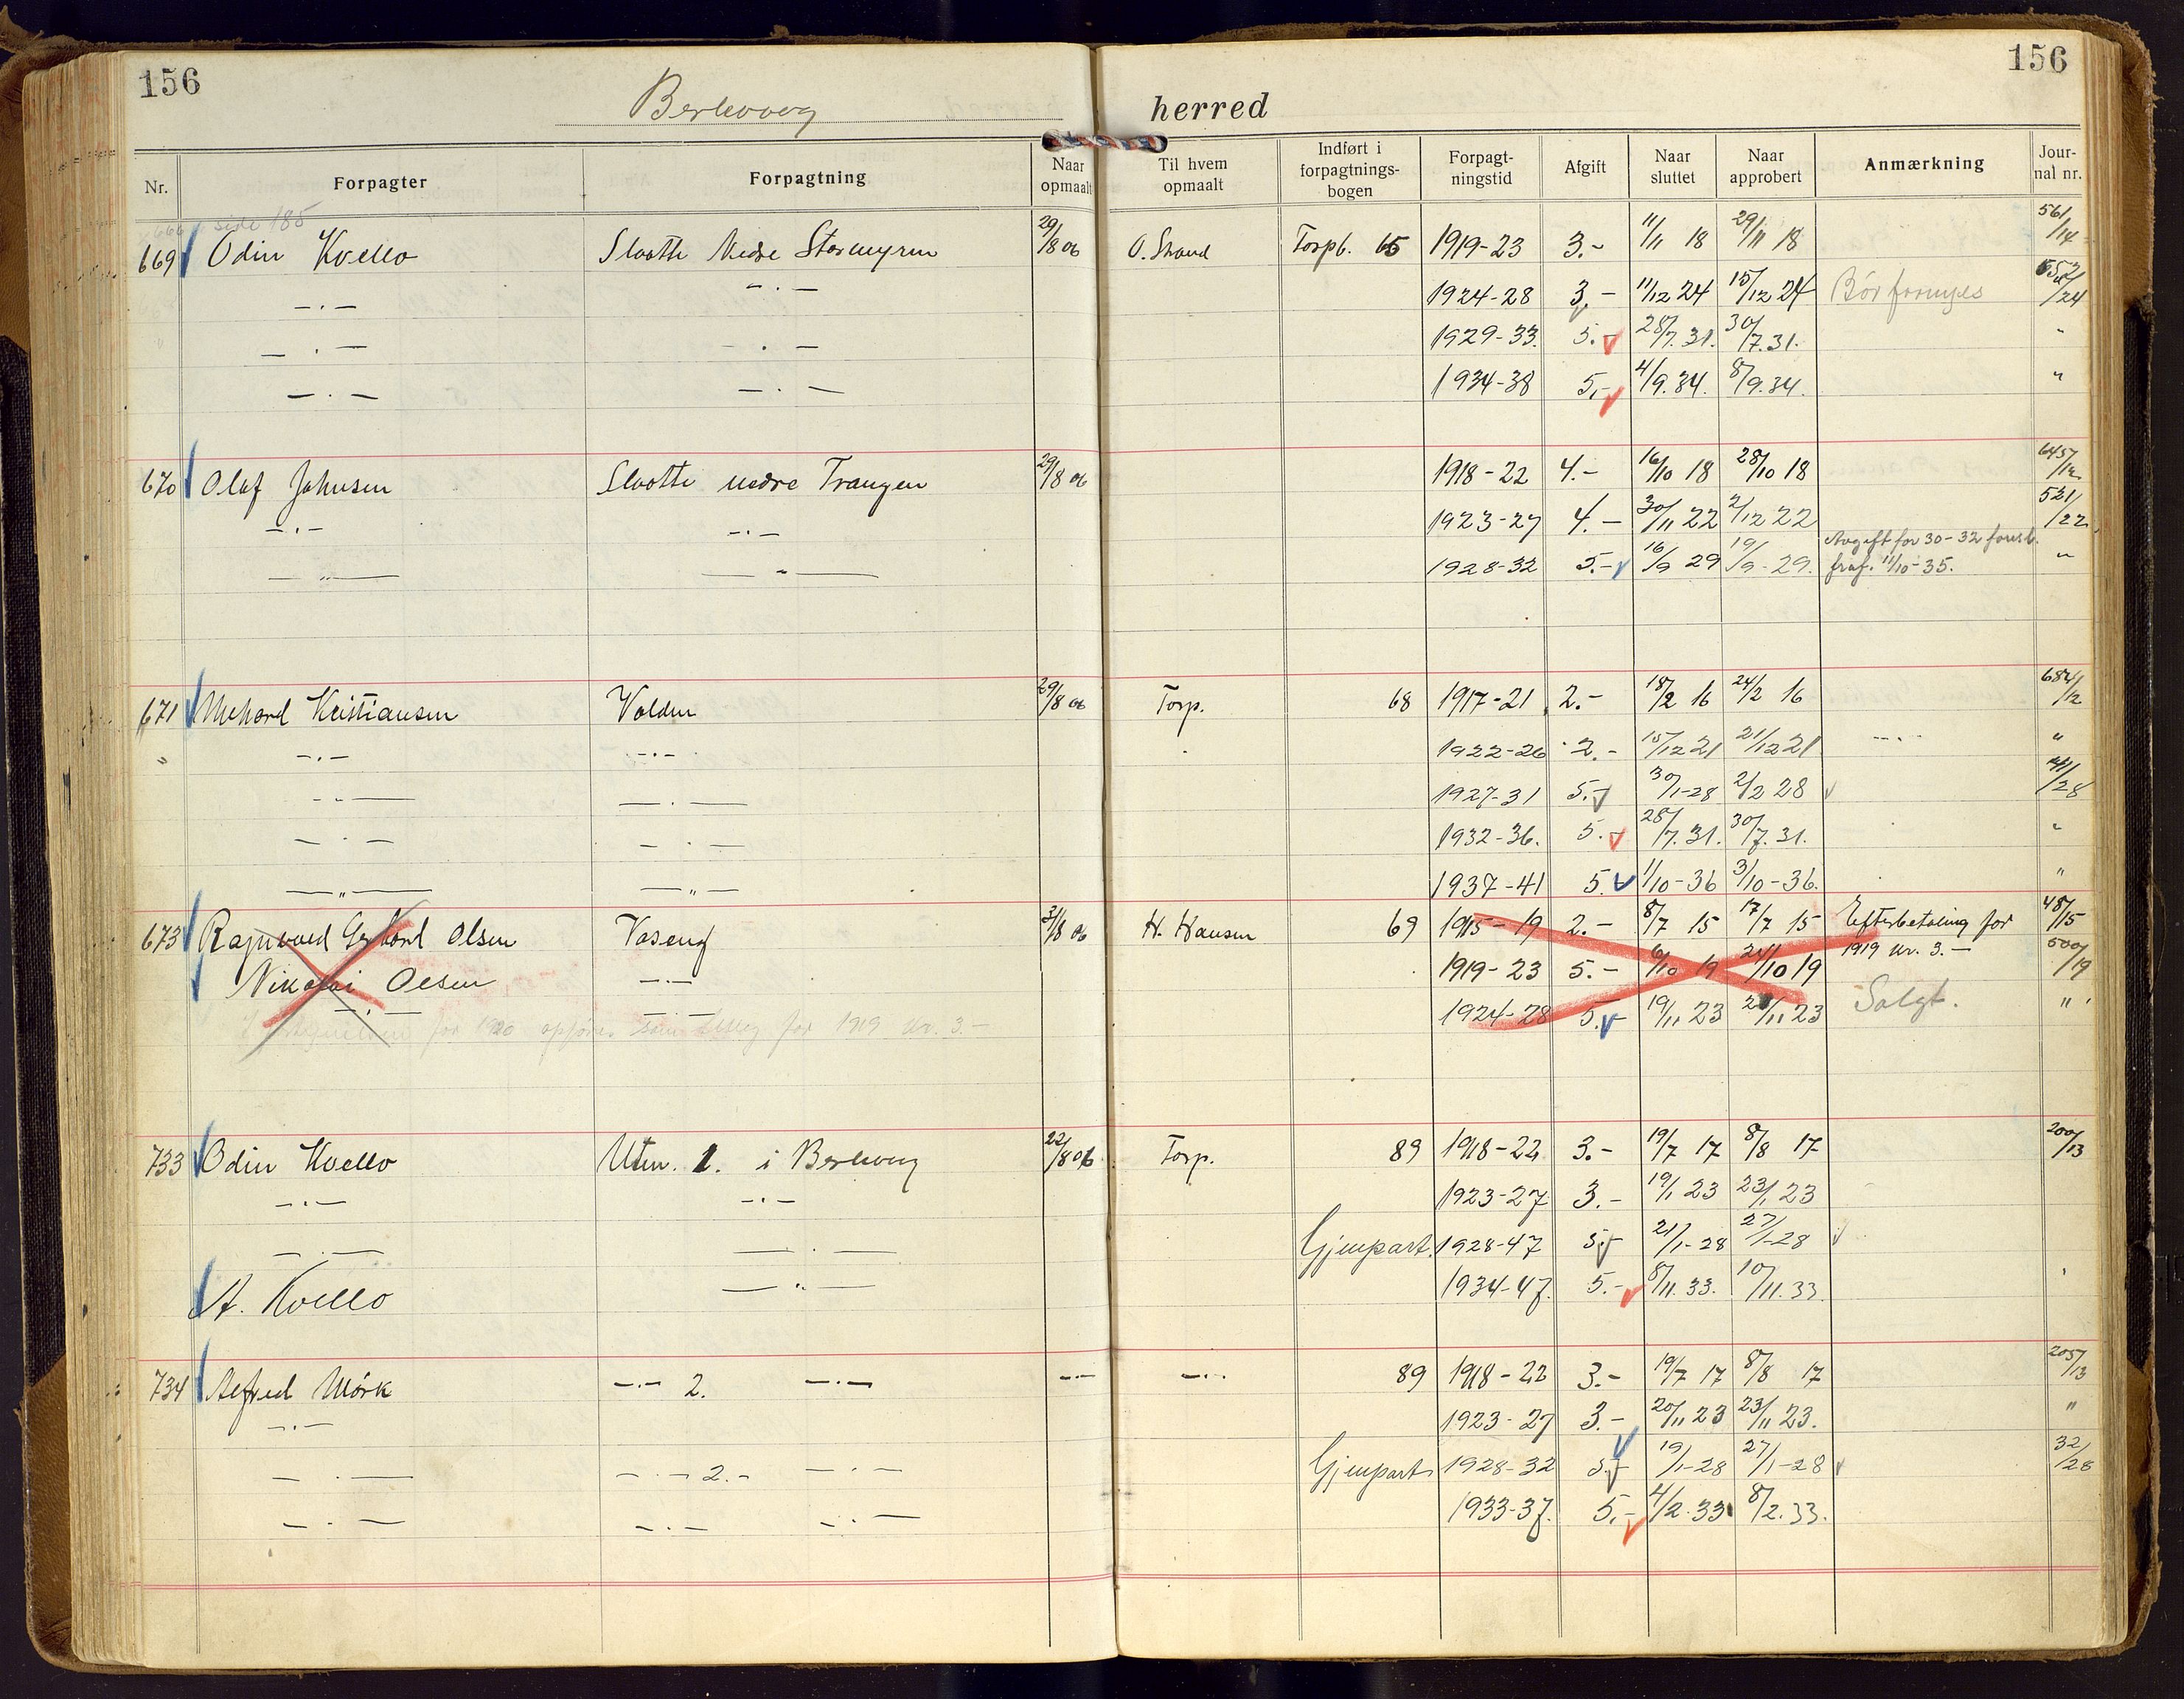 156
156
herred
Nr. Forpagter Forpagtning Naar opmaalt Til hvem opmaalt Indført i forpagtnings-bogen Forpagt-ningstid Afgift Naar sluttet Naar approbert Anmærkning Jour-nal nr.
side 185
669 Odin Kvello Slaatte Nedre Stormyren 29/8 06 O. Strand Torpb. 65 1919-23 3.- 11/11 18 29/11 18 561/14
-.- -.- 1924-28 3,- 11/12 24 15/12 24 Bør fornyes 552/24
-.- -.- 1929-33. 5.- 28/7.31. 30/7.31. "
-.- -.- 1934-38 5,- 4/9.34. 8/9.34. "
670 Olaf Johnsen Slaatte nedre Trangen 29/8 06 1918-22 4.- 16/10 18 28/10 18 645/12
-.- -.- 1923-27 4.- 30/11 22 2/12 22 521/22
-"- -"- 1928-32 5.- 16/9 29 19/9-29. Avgift for 30-32 "
11/10-35.
671 Kristiansen Volden 29/8 06 Torp. 68 1917-21 2.- 18/2 16 24/2 16 684/12
" -.- -.- 1922-26 2.- 15/12 21 21/12 21 -.- "
-"- -.- 1927-31 5.- 30/1-28 2/2 28 44/28
-.- -.- 1932-36. 5.- 28/7.31. 30/7.31. "
-"- -"- 1937-41 5. 1/10-36 3/10-36. "
673 Ragnvald Gerhard Olsen Vaseng 31/8 06 H. Hansen 69 1915-19 2.- 8/7 15 17/7 15 Efterbetaling for 48/15
Nikolai Olsen -.- 1919-23 5.- 6/10 19 24/10 19 1919 kr. 3.- 500/19
-.- -.- 1924-28 5.- 19/11 23 23 Solgt. "
for 1920 opføres som tillæg for 1919 kr. 3.-
733 Odin Kvello Utm. 1. i Berlevaag 22/8 06 Torp. 89 1918-22 3.- 19/7 17 8/8 17 200/13
-.- -.- 1923-27 3.- 19/1 23 23/1 23
-.- -.- Gjenpart. 1928-47 5.- 21/1-28 27/1-28
A. Kvello -"- 1934-47. 5.- 8/11.33. 10/11.33.
734 Alfred Mørk -.- 2. -.- -.- -.- 89 1918-22 3.- 19/7 17 8/8 17 205/13
-.- 1923-27 3.- 20/11 23 23/11 23. "
-.- -.- 2.- -.- Gjenpart 1928-32 5.- 19/1-28 27/1-28 32/28
-.- -.- -.- 1933-37. 5,- 4/2.33 8/2.33.